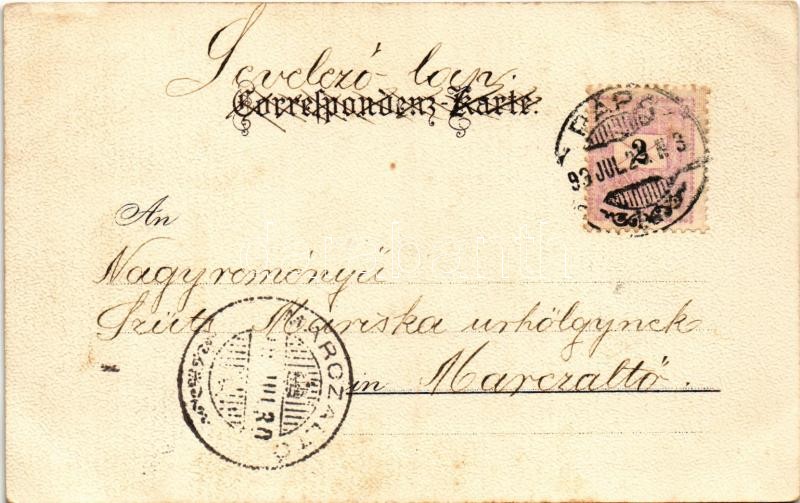 Levelező-lap.
Correspondenz-Karte.
PÁPA
2
JUL. 2
An
Nagyreményű
Szüts Mariska urhölgynek
in Marczaltő.
MARCZALTŐ
JUL 30